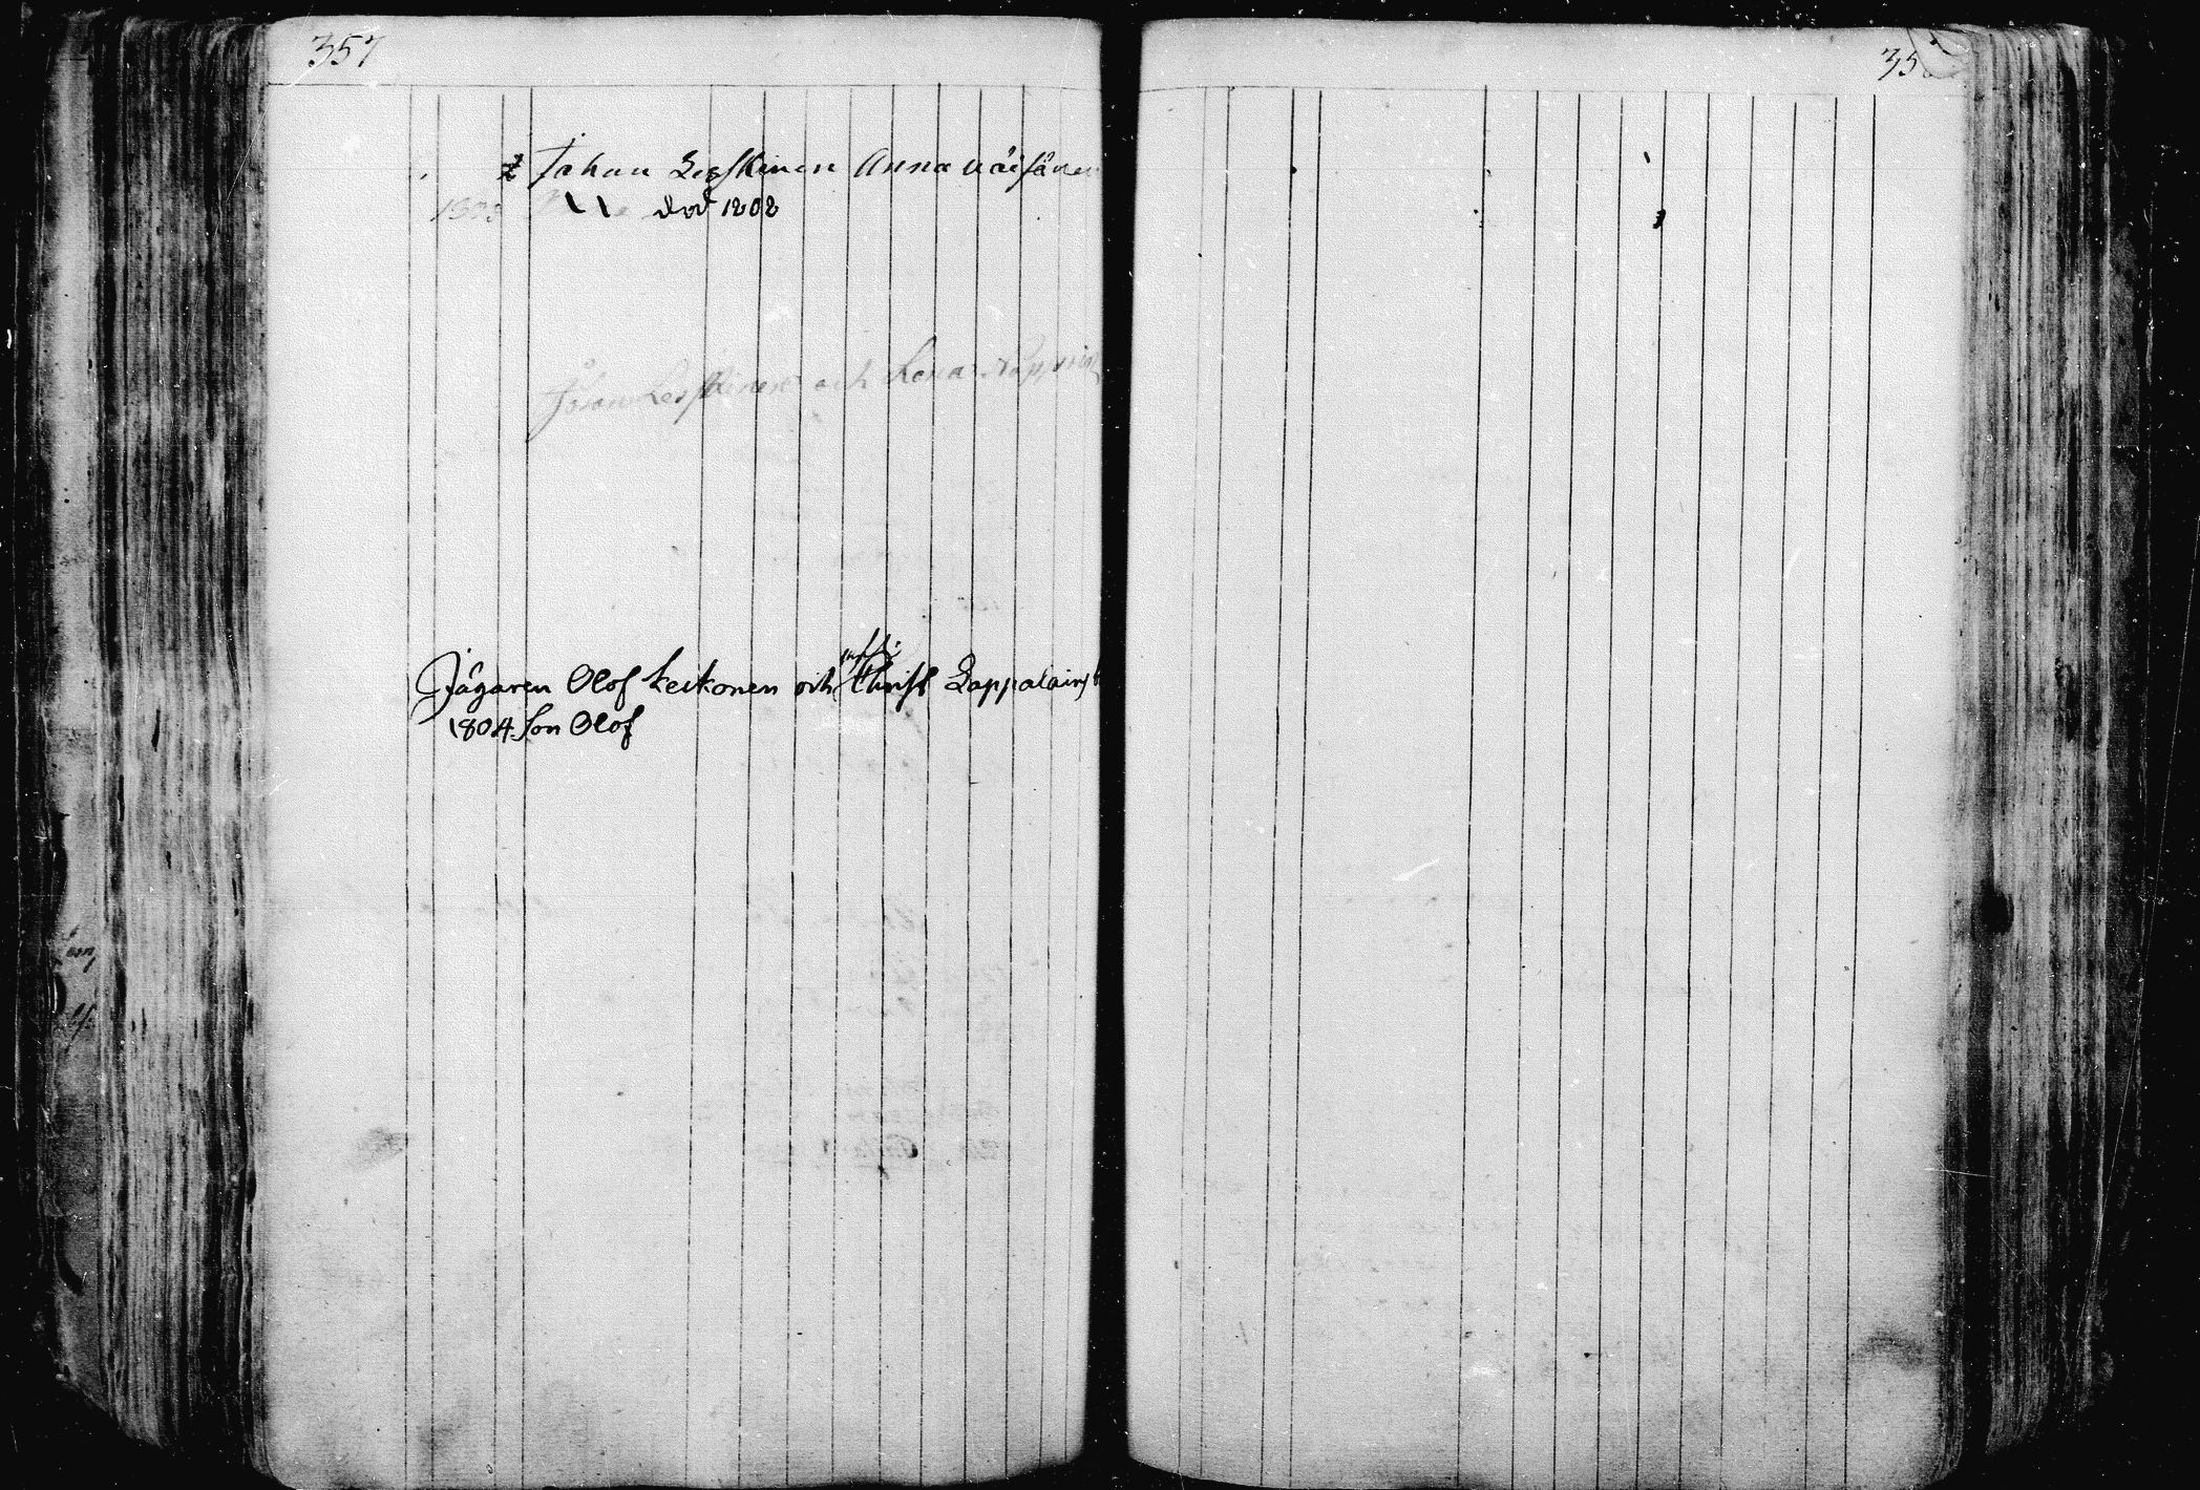 357
Johan Leskinen Anna Väisänen
död 1808
Johan Leskinen och Lena
Jägaren Olof Keckonen och Christ Lappalain
1804. Son Olof